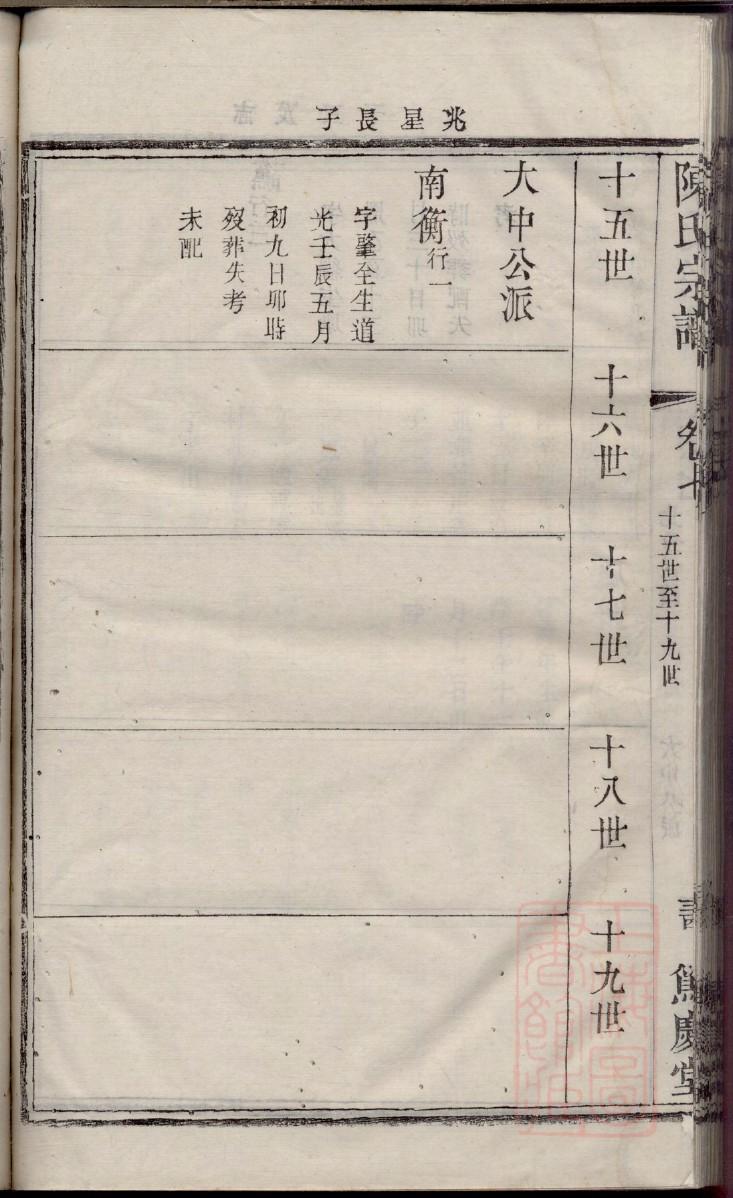 兆星長子
陳氏宗譜
卷十
十五世至十九世
篤慶堂
十五世
十六世
十七世
十八世
十九世
大中公派
南衡行一
字肇至生道
光壬辰五月
初九日卯時
歿葬失考
未配